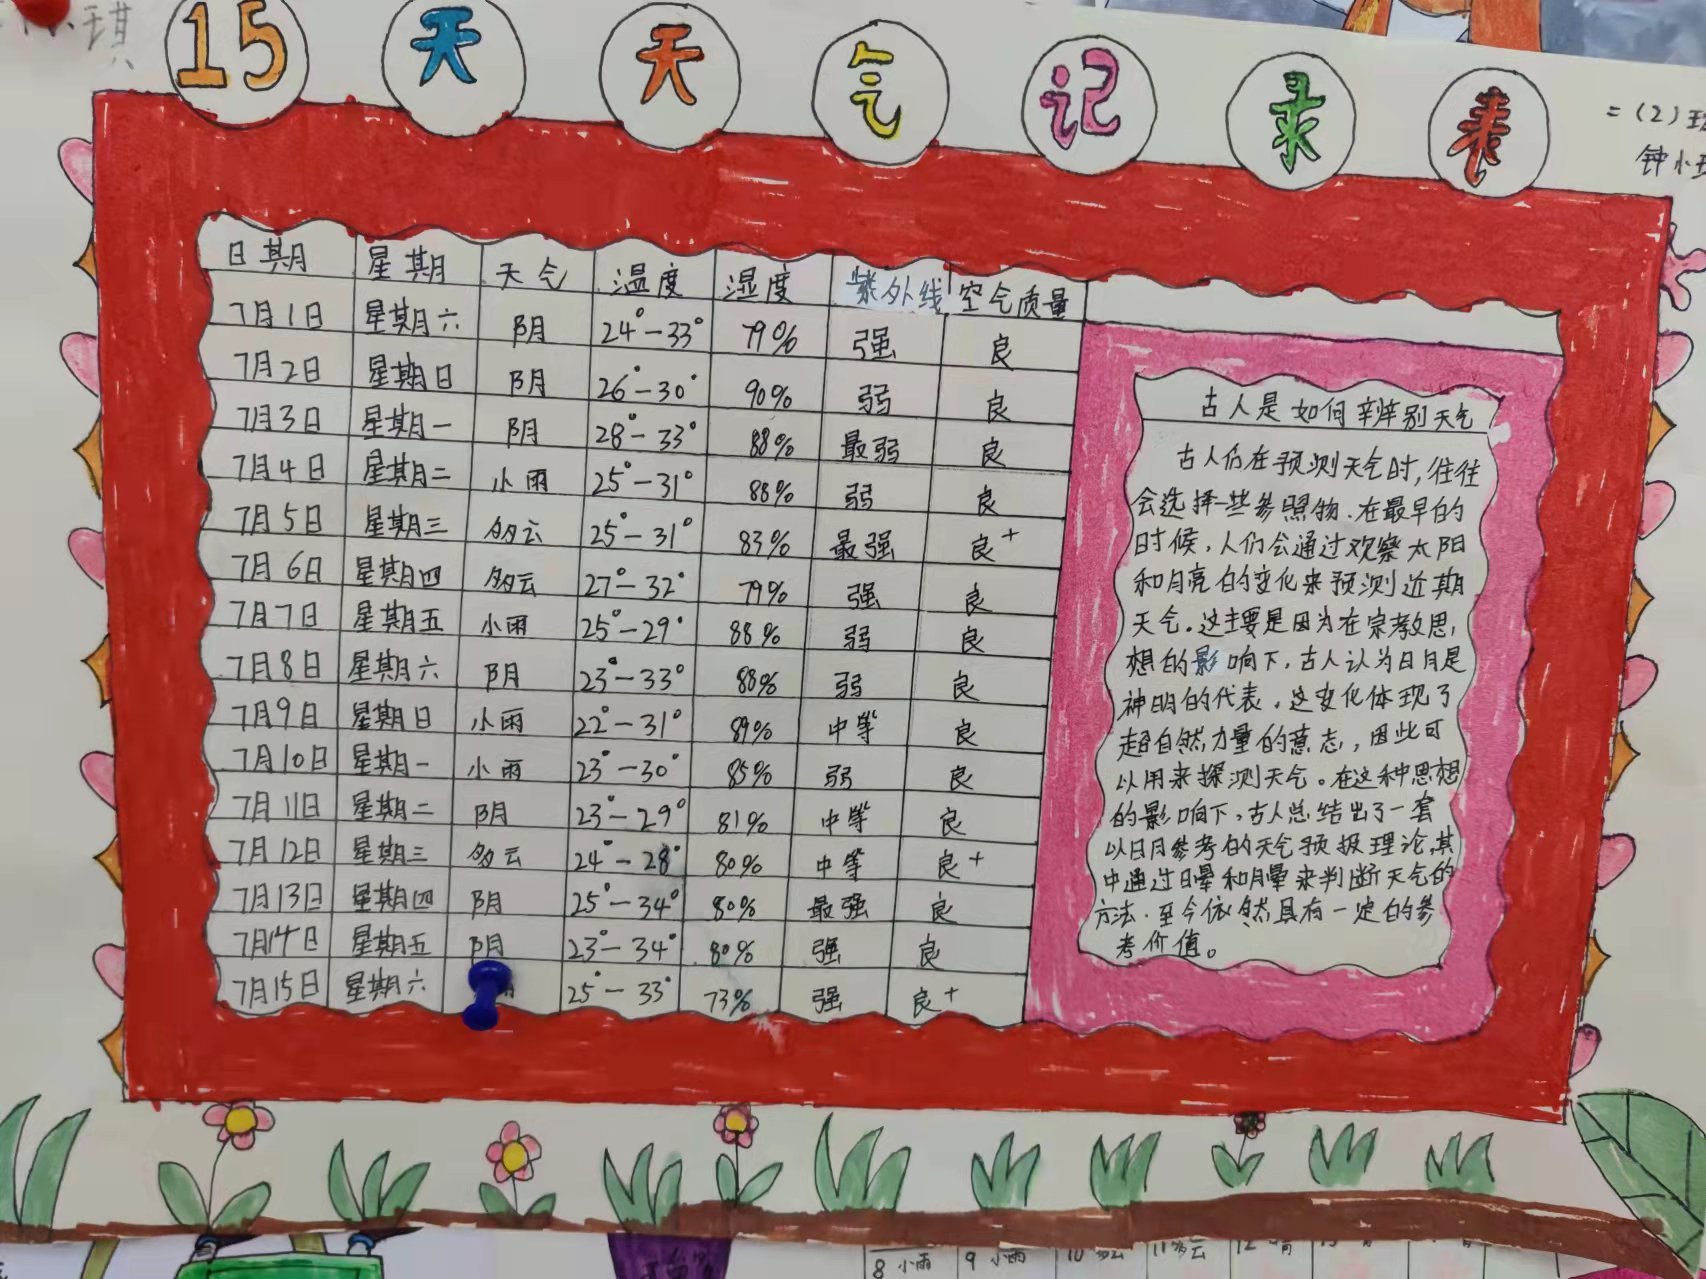 15天天气记录表
二(2)
钟小
日期 星期 天气 温度 湿度 紫外线 空气质量
7月1日 星期六 阴 24°-33° 79% 强 良
7月2日 星期日 阴 26°-30° 90% 弱 良
7月3日 星期一 阴 28°-33° 88% 最弱 良
7月4日 星期二 小雨 25°-31° 88% 弱 良
7月5日 星期三 多云 25°-31° 83% 最强 良+
7月6日 星期四 多云 27°-32° 79% 强 良
7月7日 星期五 小雨 25°-29° 88% 弱 良
7月8日 星期六 阴 23°-33° 88% 弱 良
7月9日 星期日 小雨 22°-31° 89% 中等 良
7月10日 星期一 小雨 23°-30° 85% 弱 良
7月11日 星期二 阴 23°-29° 81% 中等 良
7月12日 星期三 多云 24°-28° 80% 中等 良+
7月13日 星期四 阴 25°-34° 80% 最强 良
7月14日 星期五 阴 23°-34° 80% 强 良
7月15日 星期六 25°-33° 73% 强 良+
古人是如何辨别天气
古人们在预测天气时,往往
会选择一些参照物.在最早的
时候,人们会通过观察太阳
和月亮的变化来预测近期
天气。这主要是因为在宗教思,
想的影响下,古人认为日月是
神明的代表,这变化体现了
超自然力量的意志,因此可
以用来探测天气。在这种思想
的影响下,古人总结出了一套
以日月参考的天气预报理论,其
中通过日晕和月晕来判断天气的
方法.至今依然具有一定的参
考价值。
8 小雨 9 小雨 10 多云 11多云 12